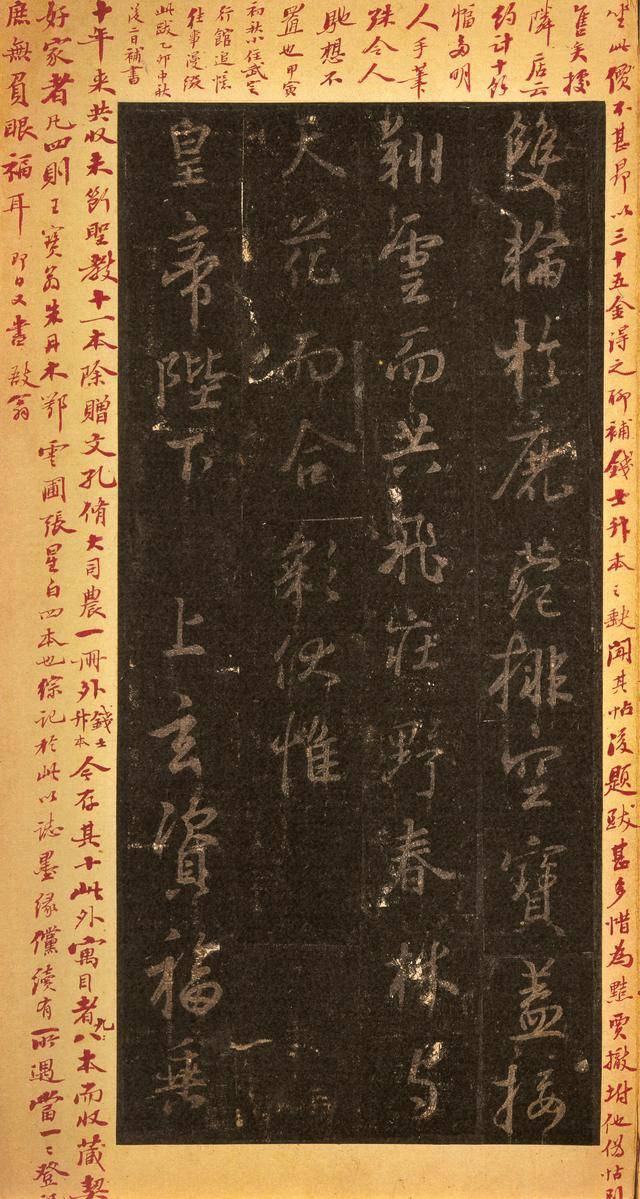 坐此價不甚昂以三十五金得之聊補錢士升本之缺聞其帖後題跋甚多惜為黠賈撤坿他偽帖別
售矣據
隣店云
約計十餘
幅多明
人手筆
殊令人
馳想不
置也甲寅
初秋小住武定
行館追憶
往事漫綴
此跋乙卯中秋
後二日補書
雙輪於鹿菀排空寶蓋接
翔雲而共飛莊野春林与
天花而合彩伏惟
皇帝陛下上玄資福垂
十年来共收未斷聖教十一本除贈文孔脩大司農一冊外錢士升本今存其十此外寓目者九八本而收藏契
好家者凡四則王寶翁朱丹木鄂雲圃張星白四本也綜記於此以誌墨緣儻續有所遇當一一登
庶無負眼福耳即日又書